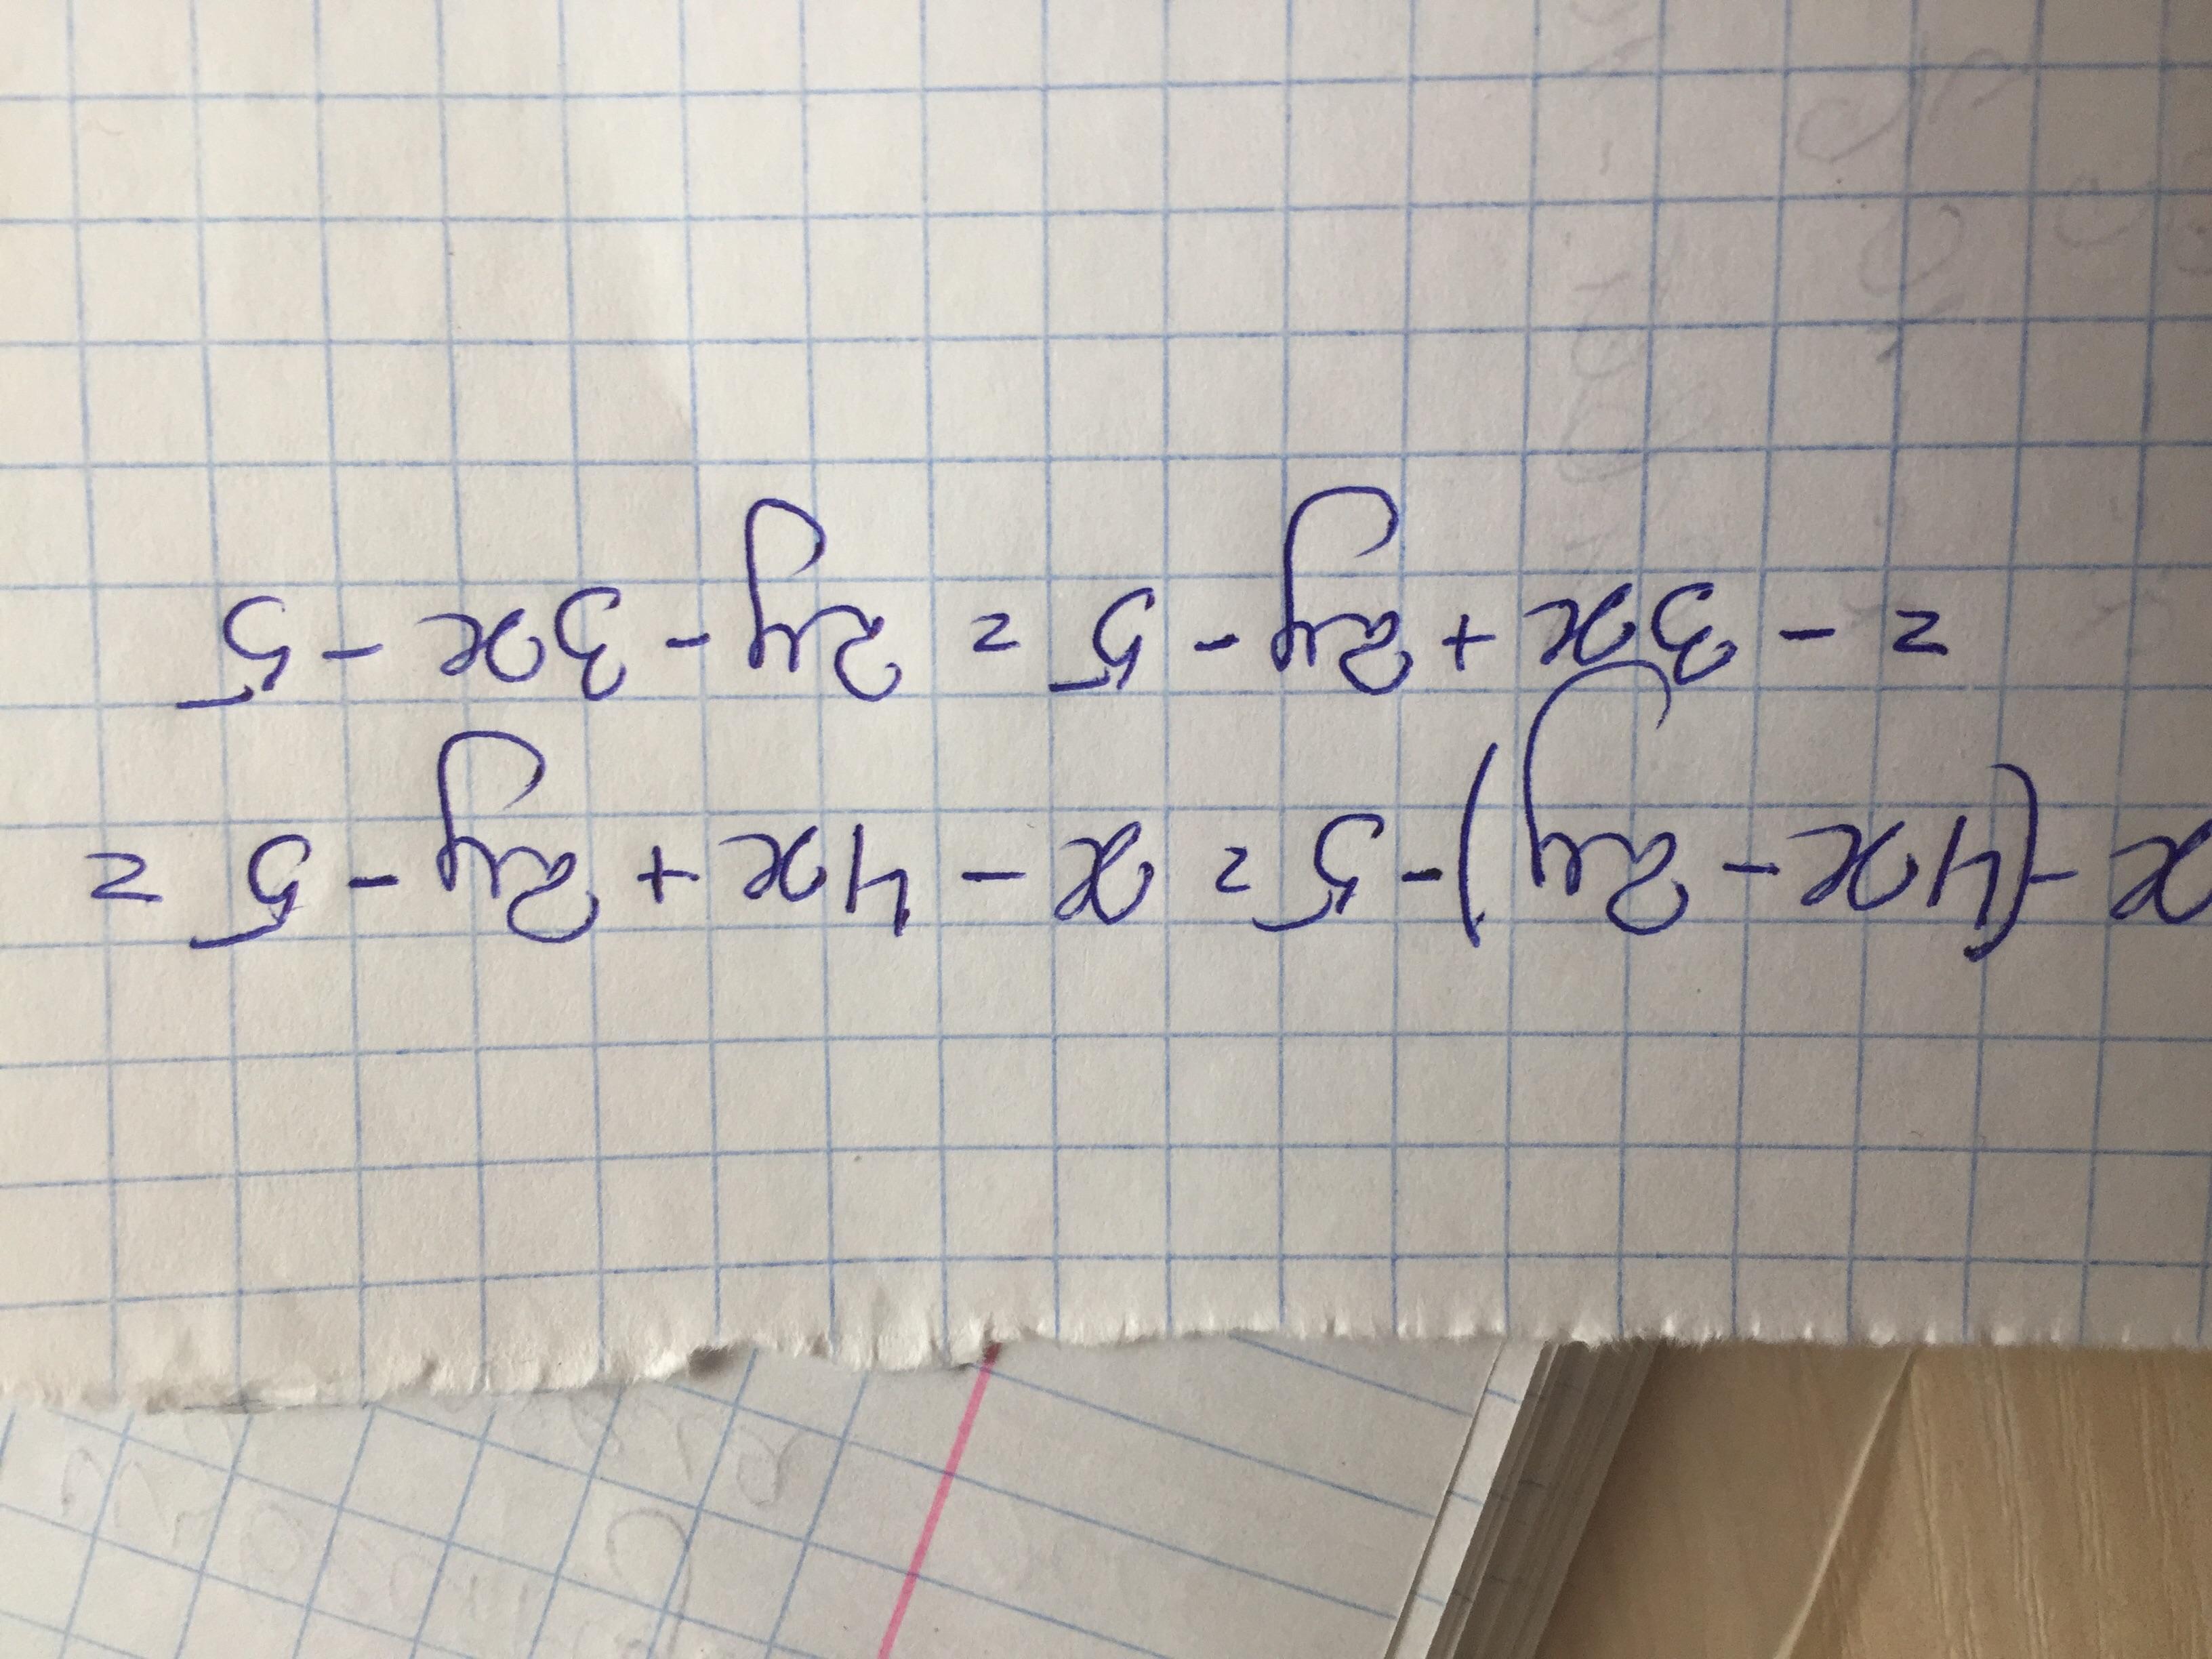 x-(4x-2y)-5=x-4x+2y-5=
=-3x+2y-5=2y-3x-5